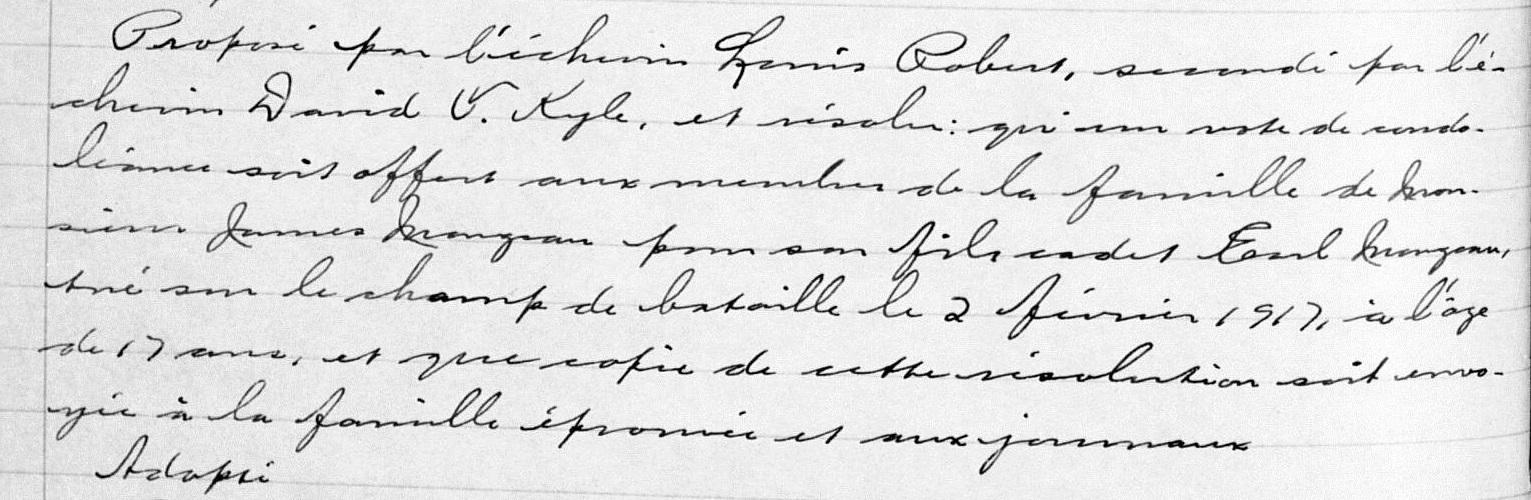 Proposé par l'échevin Louis Robert, secondé par l'é-
chevin David V. Kyle, et résolu: qu'un vote de condo-
léance soit offert aux membres de la famille de Mon-
sieur James Mongeau pour son fils cadet Earl Mongeau,
tué sur le champ de bataille le 2 février 1917, à l'âge
de 17 ans, et que copie de cette résolution soit envo-
yée à la famille éprouvée et aux journaux
Adopté